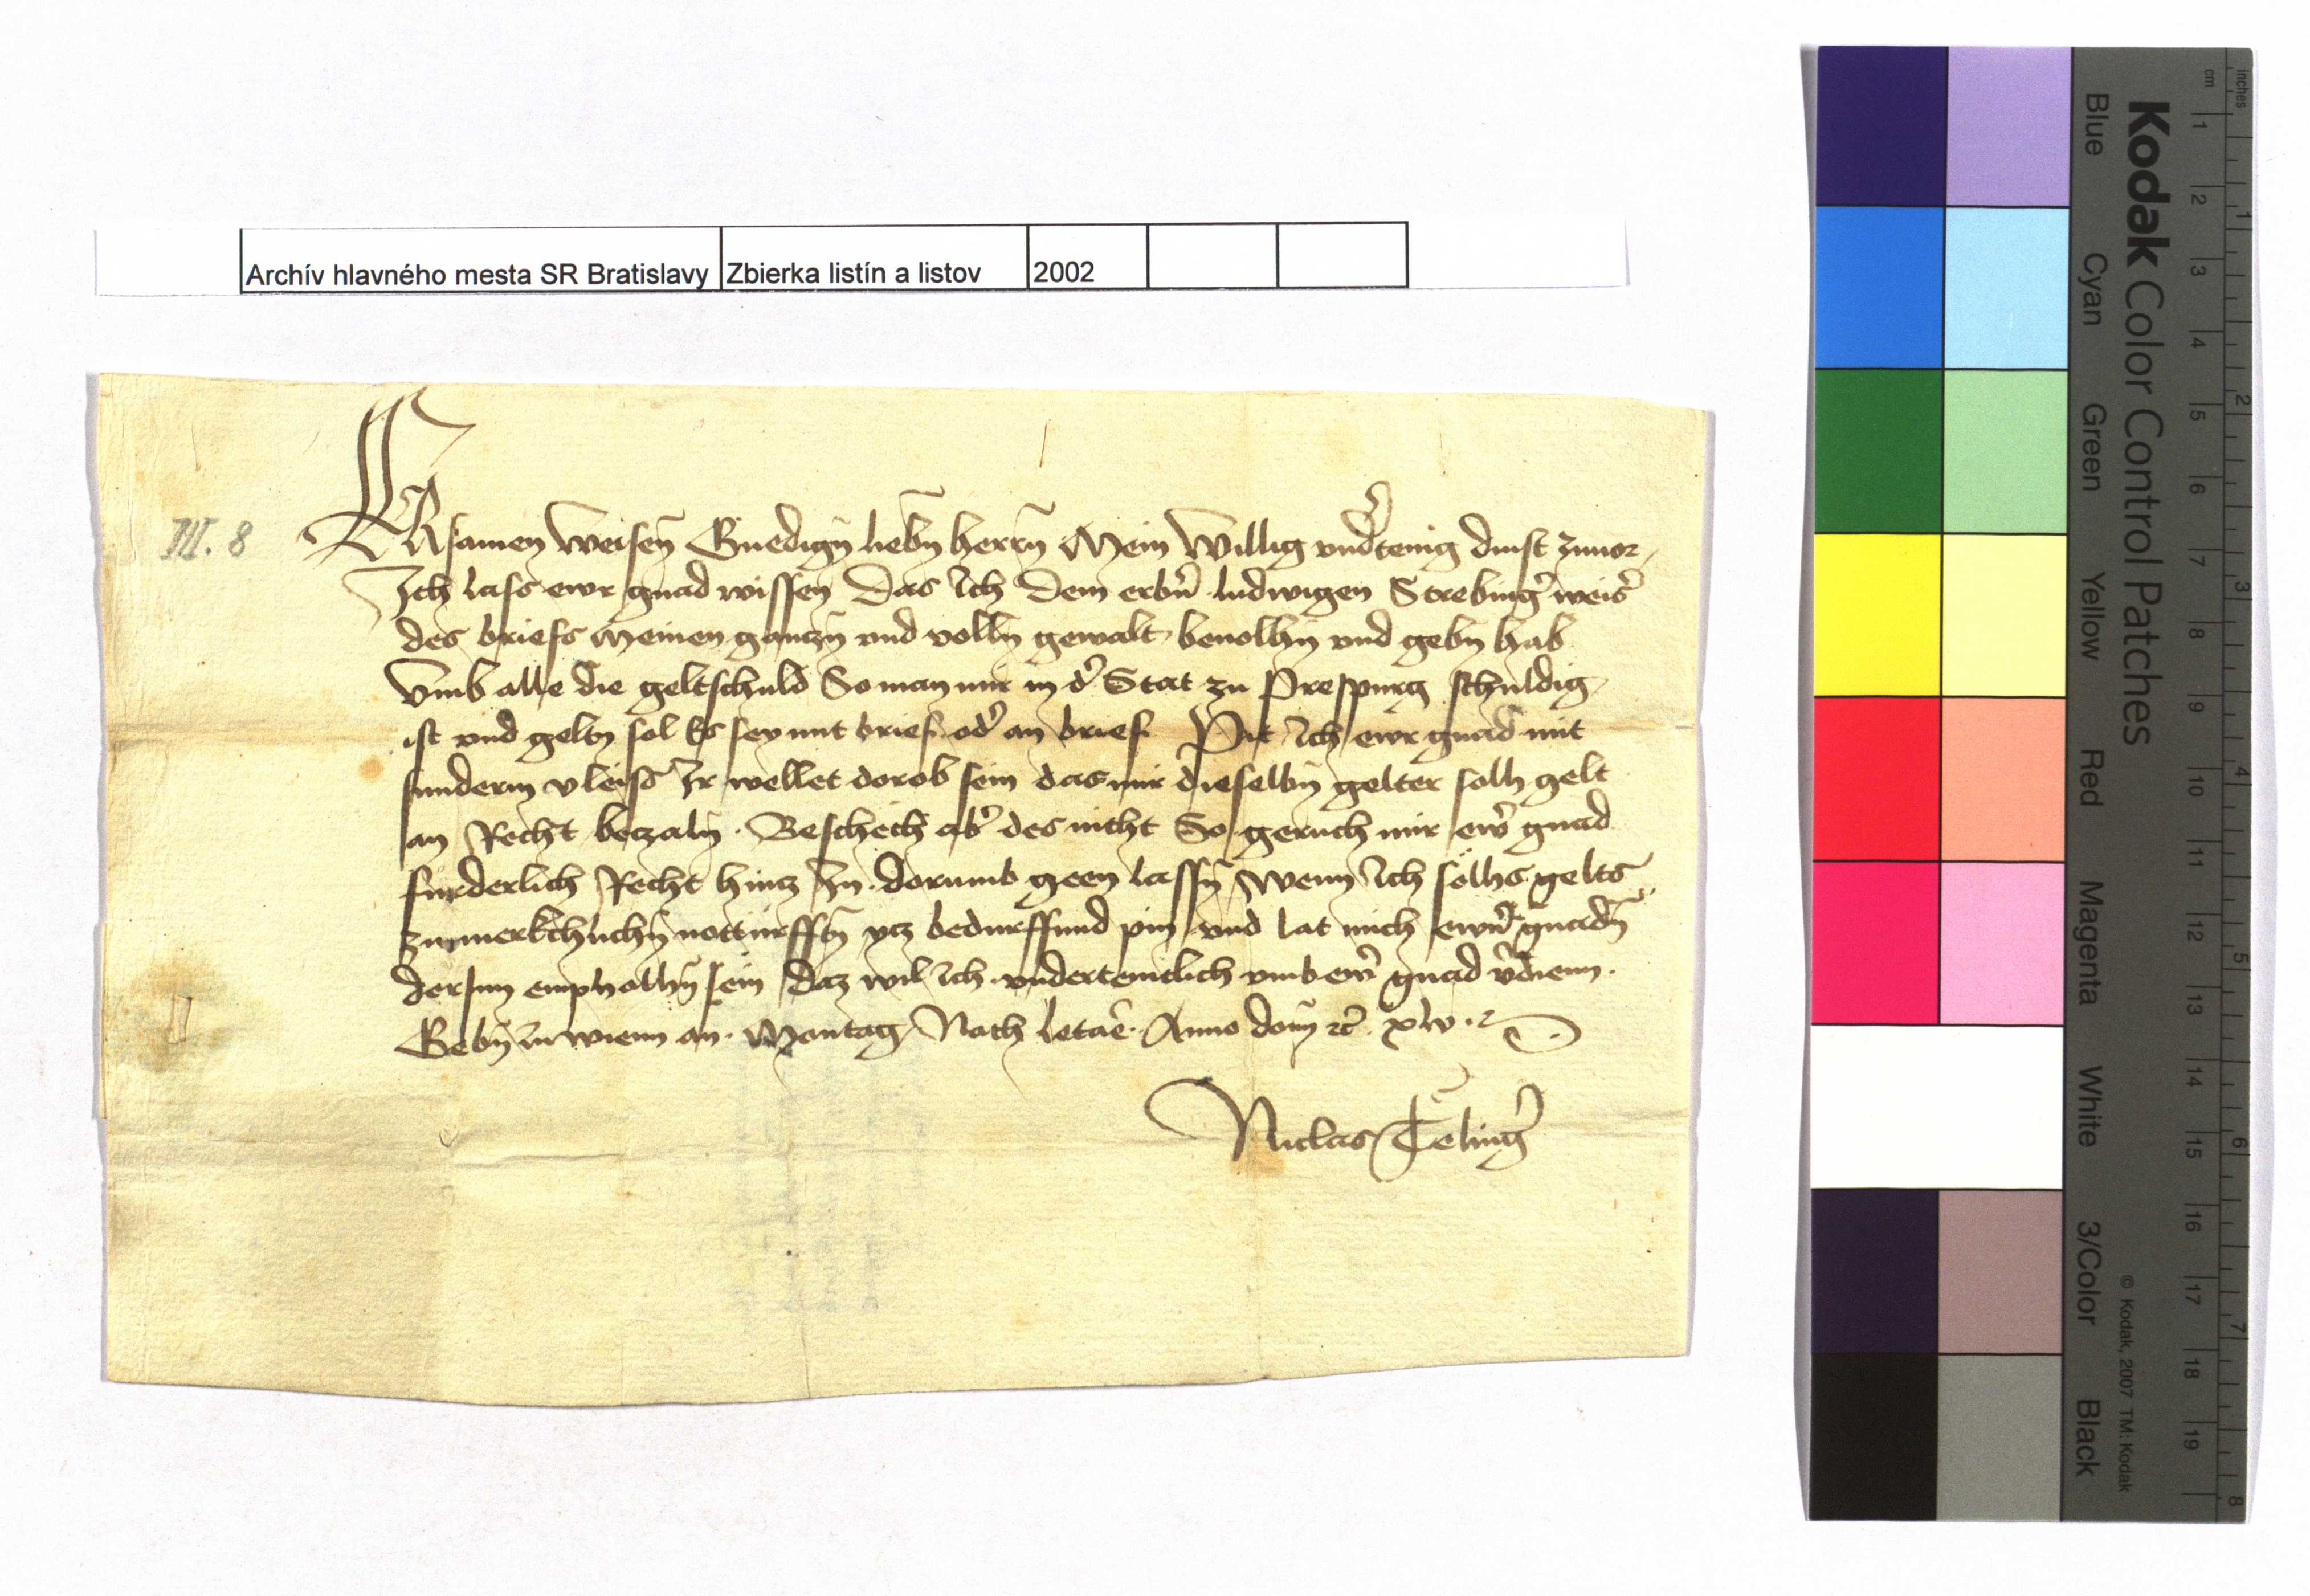 Archív hlavného mesta SR Bratislavy Zbierka listín a listov 2002
III. 8
ERsamen Weisen̄ Gnedign̄ liebn̄ herrn̄ Mein Willig vndʼtenig dinst zuuor
Ich lass ewr gnad wissen Das Ich Dem erbn̄ ludwigen Strebingʼ weisʼ
des briefs meinen gantzn̄ vnd volln̄ gewalt beuolhn̄ vnd gebn̄ hab
Vmb alle die geltschuld So man mir in dʼ Stat zu Prespurg schuldig
ist vnd geltn̄ sol Es sey mit brief odʼ an brief Pit Ich ewr gnad mit
sunderm vleiss Ir wellet dorob sein das mir dieselbn̄ gelter solh gelt
an Recht betzaln̄ . Beschech abʼ des nicht So geruch mir ewʼ gnad
furderlich Recht hintz In . dorumb geen lassn̄ Wenn Ich sölhs gelts
zu merkchlichn̄ notturfftn̄ ytz bedurffund pin vnd lat mich ewrn̄ gnadn̄
dorinn empholhn̄ sein Daz wil Ich vndertenitlich vmb ewʼ gnad vʼdienn .
Gebn̄ zu wienn an . Montag Nach letare . Anno dom̄ ꝛc̄ . xlv .
Niclas Telingʼ
Kodak Color Control Patches
Blue Cyan Green Yellow Red Magenta White 3/Color Black
© Kodak, 2007 TM: Kodak
inches 1 2 3 4 5 6 7 8
cm 1 2 3 4 5 6 7 8 9 10 11 12 13 14 15 16 17 18 19